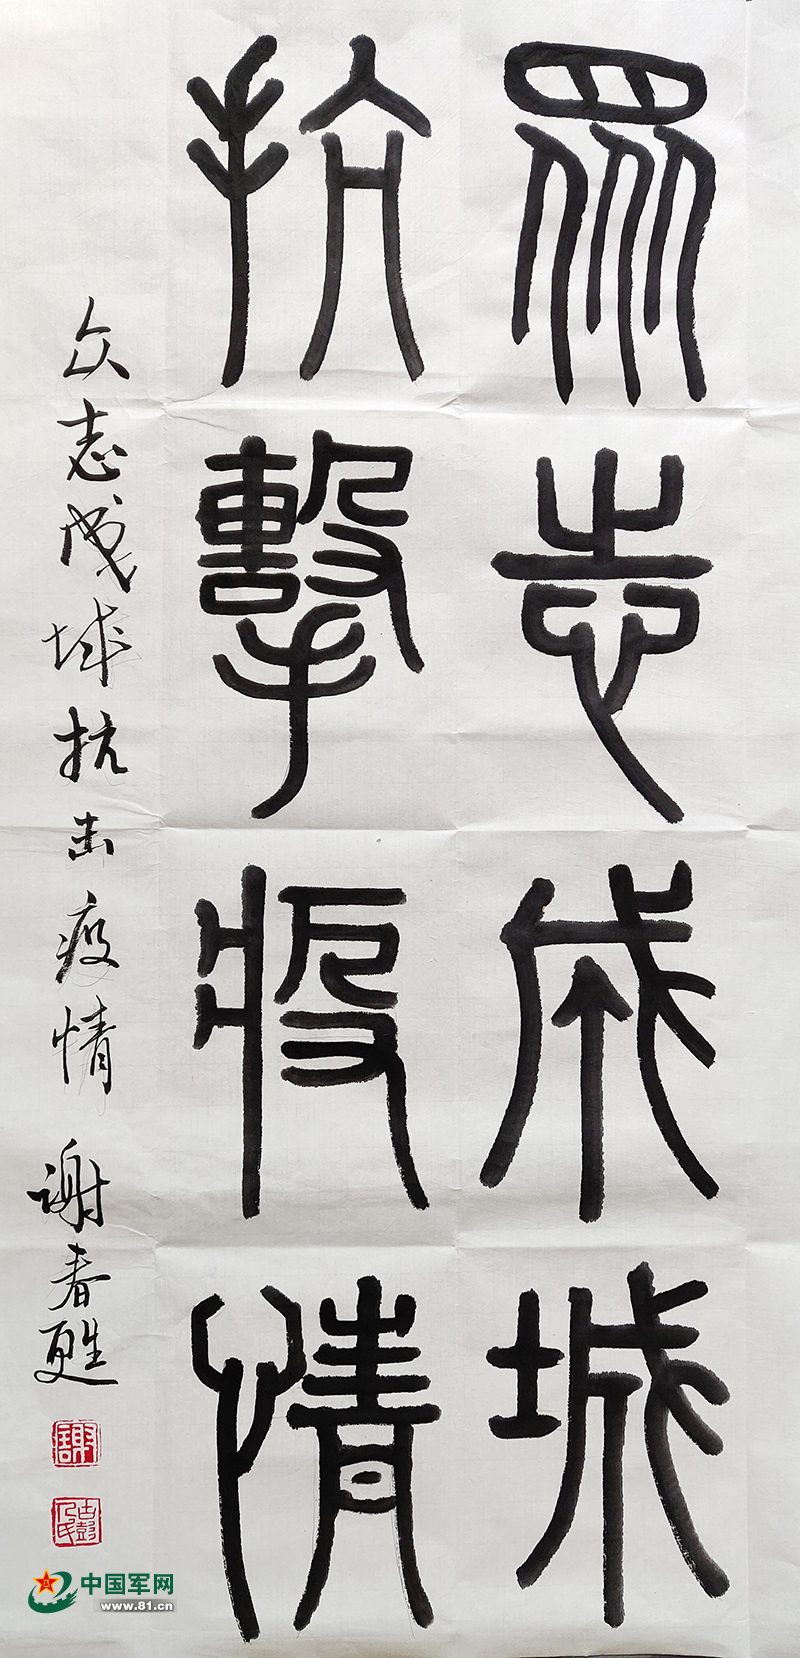 眾志成城
抗擊疫情
众志成城抗击疫情 谢春甦
謝
古彭人氏
中国军网
www.81.cn